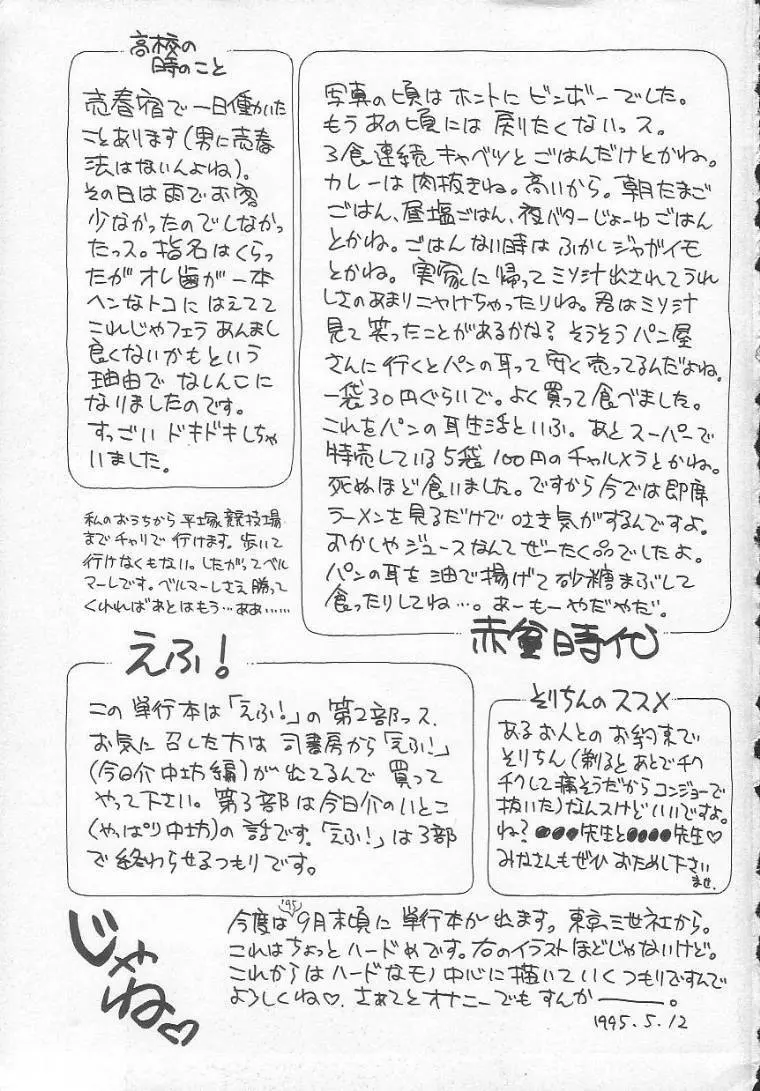 高校の
時のこと
売春宿で一日働いた
ことあります(男に売春
法はないんよね)。
その日は雨でお客
少なかったのでしなかっ
たっス。指名はくらっ
たがオレ歯が一本
ヘンなトコにはえてて
これじゃフェラあんまし
良くないかもという
理由でなしんこに
なりましたのです。
すっごいドキドキしちゃ
いました。
写真の頃はホントにビンボーでした。
もうあの頃には戻りたくないっス。
3食連続キャベツとごはんだけとかね。
カレーは肉抜きね。高いから。朝たまご
ごはん、昼塩ごはん、夜バターじょーゆごはん
とかね。ごはんない時はふかしジャガイモ
とかね。実家に帰ってミソ汁出されてうれ
しさのあまりニヤけちゃったりね。君はミソ汁
見て笑ったことがあるかな?そうそうパン屋
さんに行くとパンの耳って安く売ってるんだよね。
一袋30円ぐらいで。よく買って食べました。
これをパンの耳生活といふ。あとスーパーで
特売している5袋100円のチャルメラとかね。
死ぬほど食いました。ですから今では即席
ラーメンを見るだけで吐き気がするんですよ。
おかしやジュースなんてぜーたく品でしたよ。
パンの耳を油で揚げて砂糖まぶして
食ったりしてね…。あーもーやだやだ。
赤貧時代
私のおうちから平塚競技場
までチャリで行けます。歩いて
行けなくもない。したがってベル
マーレです。ベルマーレさえ勝って
くれればあとはもう…ああ……
えふ!
この単行本は「えふ!」の第2部っス。
お気に召した方は司書房から「えふ!」
(今日介中坊編)が出てるんで買って
やって下さい。第3部は今日介のいとこ
(やっぱり中坊)の話です。「えふ!」は3部
で終わらせるつもりです。
そりちんのススメ
あるお人とのお約束で
そりちん(剃るとあとでチク
チクして痛そうだからコンジョーで
抜いた)なんスけどいいですよ。
ね?●●●先生と●●●●先生♡
みなさんもぜひおためし下さい
ませ。
じゃね♡
今度は'95 9月末頃に単行本が出ます。東京三世社から。
これはちょっとハードめです。右のイラストほどじゃないけど。
これからはハードなモノ中心に描いていくつもりですんで
よろしくね♡。さぁてとオナニーでもすんか――。
1995.5.12